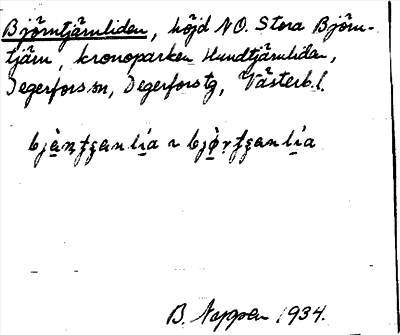 Björntjärnliden, höjd NO. Stora Björn-
tjärn, kronoparken Hundtjärnlidan,
Degerfors sn, Degerfors tg, Västerb.l.
B. Nappen 1934.